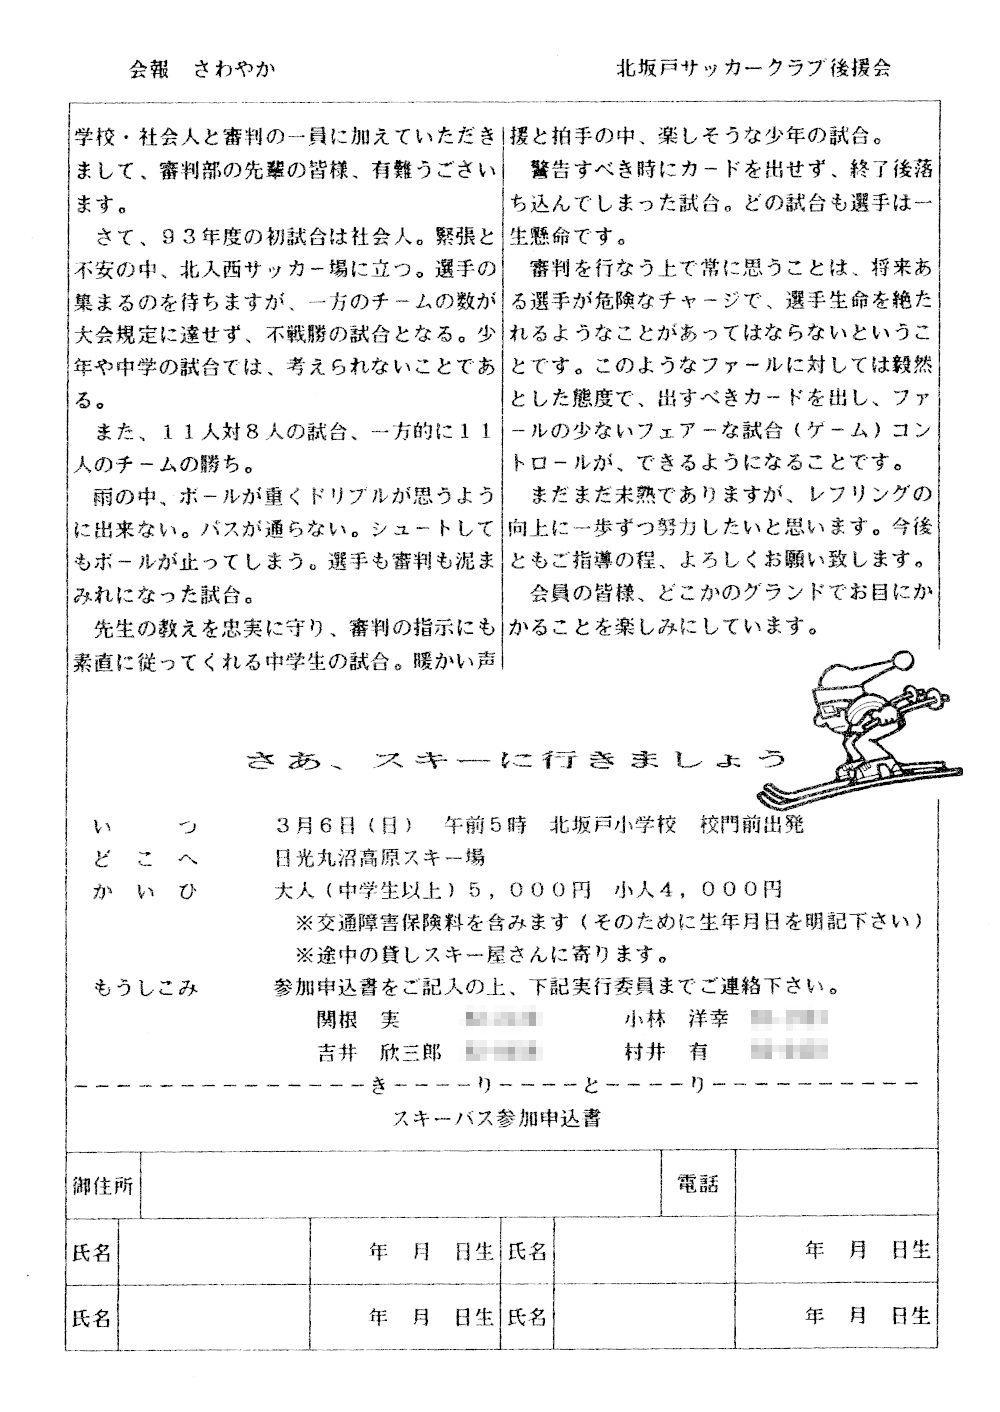 会報　さわやか
北坂戸サッカークラブ後援会
学校・社会人と審判の一員に加えていただき
まして、審判部の先輩の皆様、有難うござい
ます。
　さて、９３年度の初試合は社会人。緊張と
不安の中、北入西サッカー場に立つ。選手の
集まるのを待ちますが、一方のチームの数が
大会規定に達せず、不戦勝の試合となる。少
年や中学の試合では、考えられないことであ
る。
　また、１１人対８人の試合、一方的に１１
人のチームの勝ち。
　雨の中、ボールが重くドリブルが思うよう
に出来ない。パスが通らない。シュートして
もボールが止ってしまう。選手も審判も泥ま
みれになった試合。
　先生の教えを忠実に守り、審判の指示にも
素直に従ってくれる中学生の試合。暖かい声
援と拍手の中、楽しそうな少年の試合。
　警告すべき時にカードを出せず、終了後落
ち込んでしまった試合。どの試合も選手は一
生懸命です。
　審判を行なう上で常に思うことは、将来あ
る選手が危険なチャージで、選手生命を絶た
れるようなことがあってはならないというこ
とです。このようなファールに対しては毅然
とした態度で、出すべきカードを出し、ファ
ールの少ないフェアーな試合（ゲーム）コン
トロールが、できるようになることです。
　まだまだ未熟でありますが、レフリングの
向上に一歩ずつ努力したいと思います。今後
ともご指導の程、よろしくお願い致します。
　会員の皆様、どこかのグランドでお目にか
かることを楽しみにしています。
さあ、スキーに行きましょう
い　つ　３月６日（日）　午前５時　北坂戸小学校　校門前出発
ど　こ　へ　日光丸沼高原スキー場
か　い　ひ　大人（中学生以上）５，０００円　小人４，０００円
※交通障害保険料を含みます（そのために生年月日を明記下さい）
※途中の貸しスキー屋さんに寄ります。
もうしこみ　参加申込書をご記入の上、下記実行委員までご連絡下さい。
関根　実　小林　洋幸
吉井　欣三郎　村井　有
－－－－－－－－－－－－－－き－－－－り－－－－と－－－－り－－－－－－－－－－
スキーバス参加申込書
御住所　電話
氏名　年　月　日生　氏名　年　月　日生
氏名　年　月　日生　氏名　年　月　日生